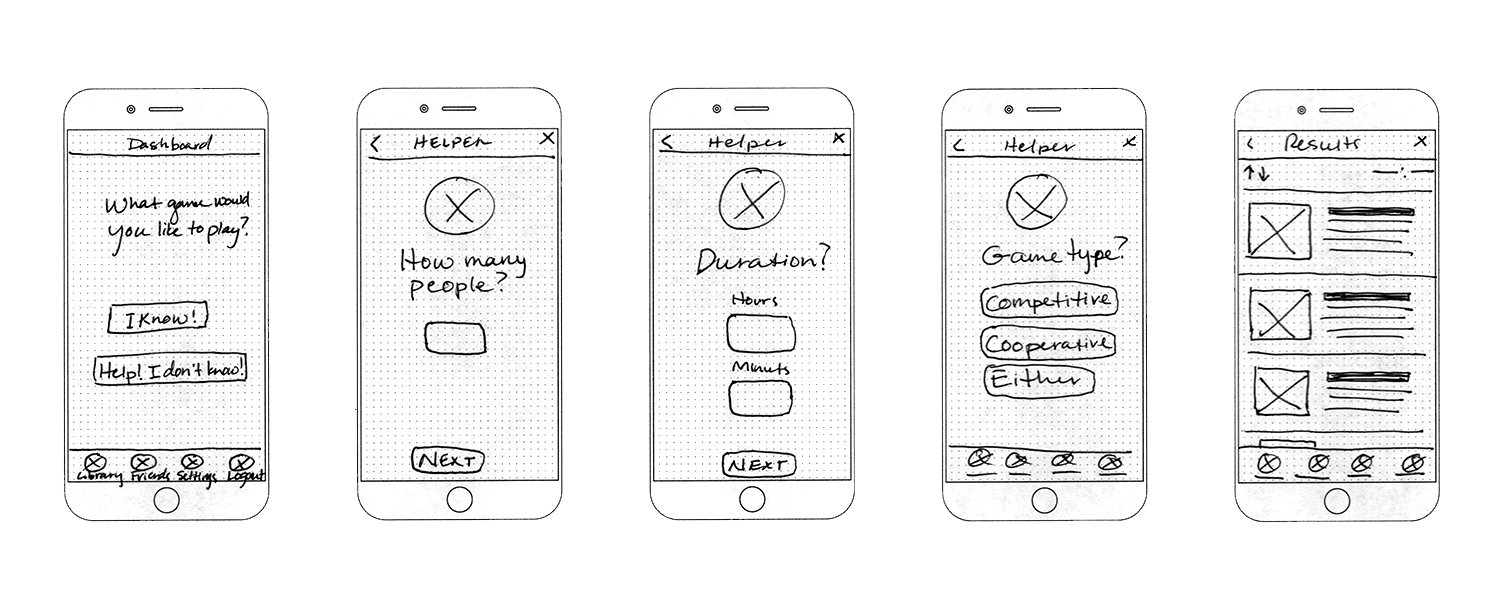 Dashboard
What game would
you like to play?
I Know!
Help! I don't know!
Library Friends Settings Logout
< HELPER X
How many
people?
NEXT
< Helper X
Duration?
Hours
Minuts
NEXT
< Helper X
Game type?
Competitive
Cooperative
Either
< Results X